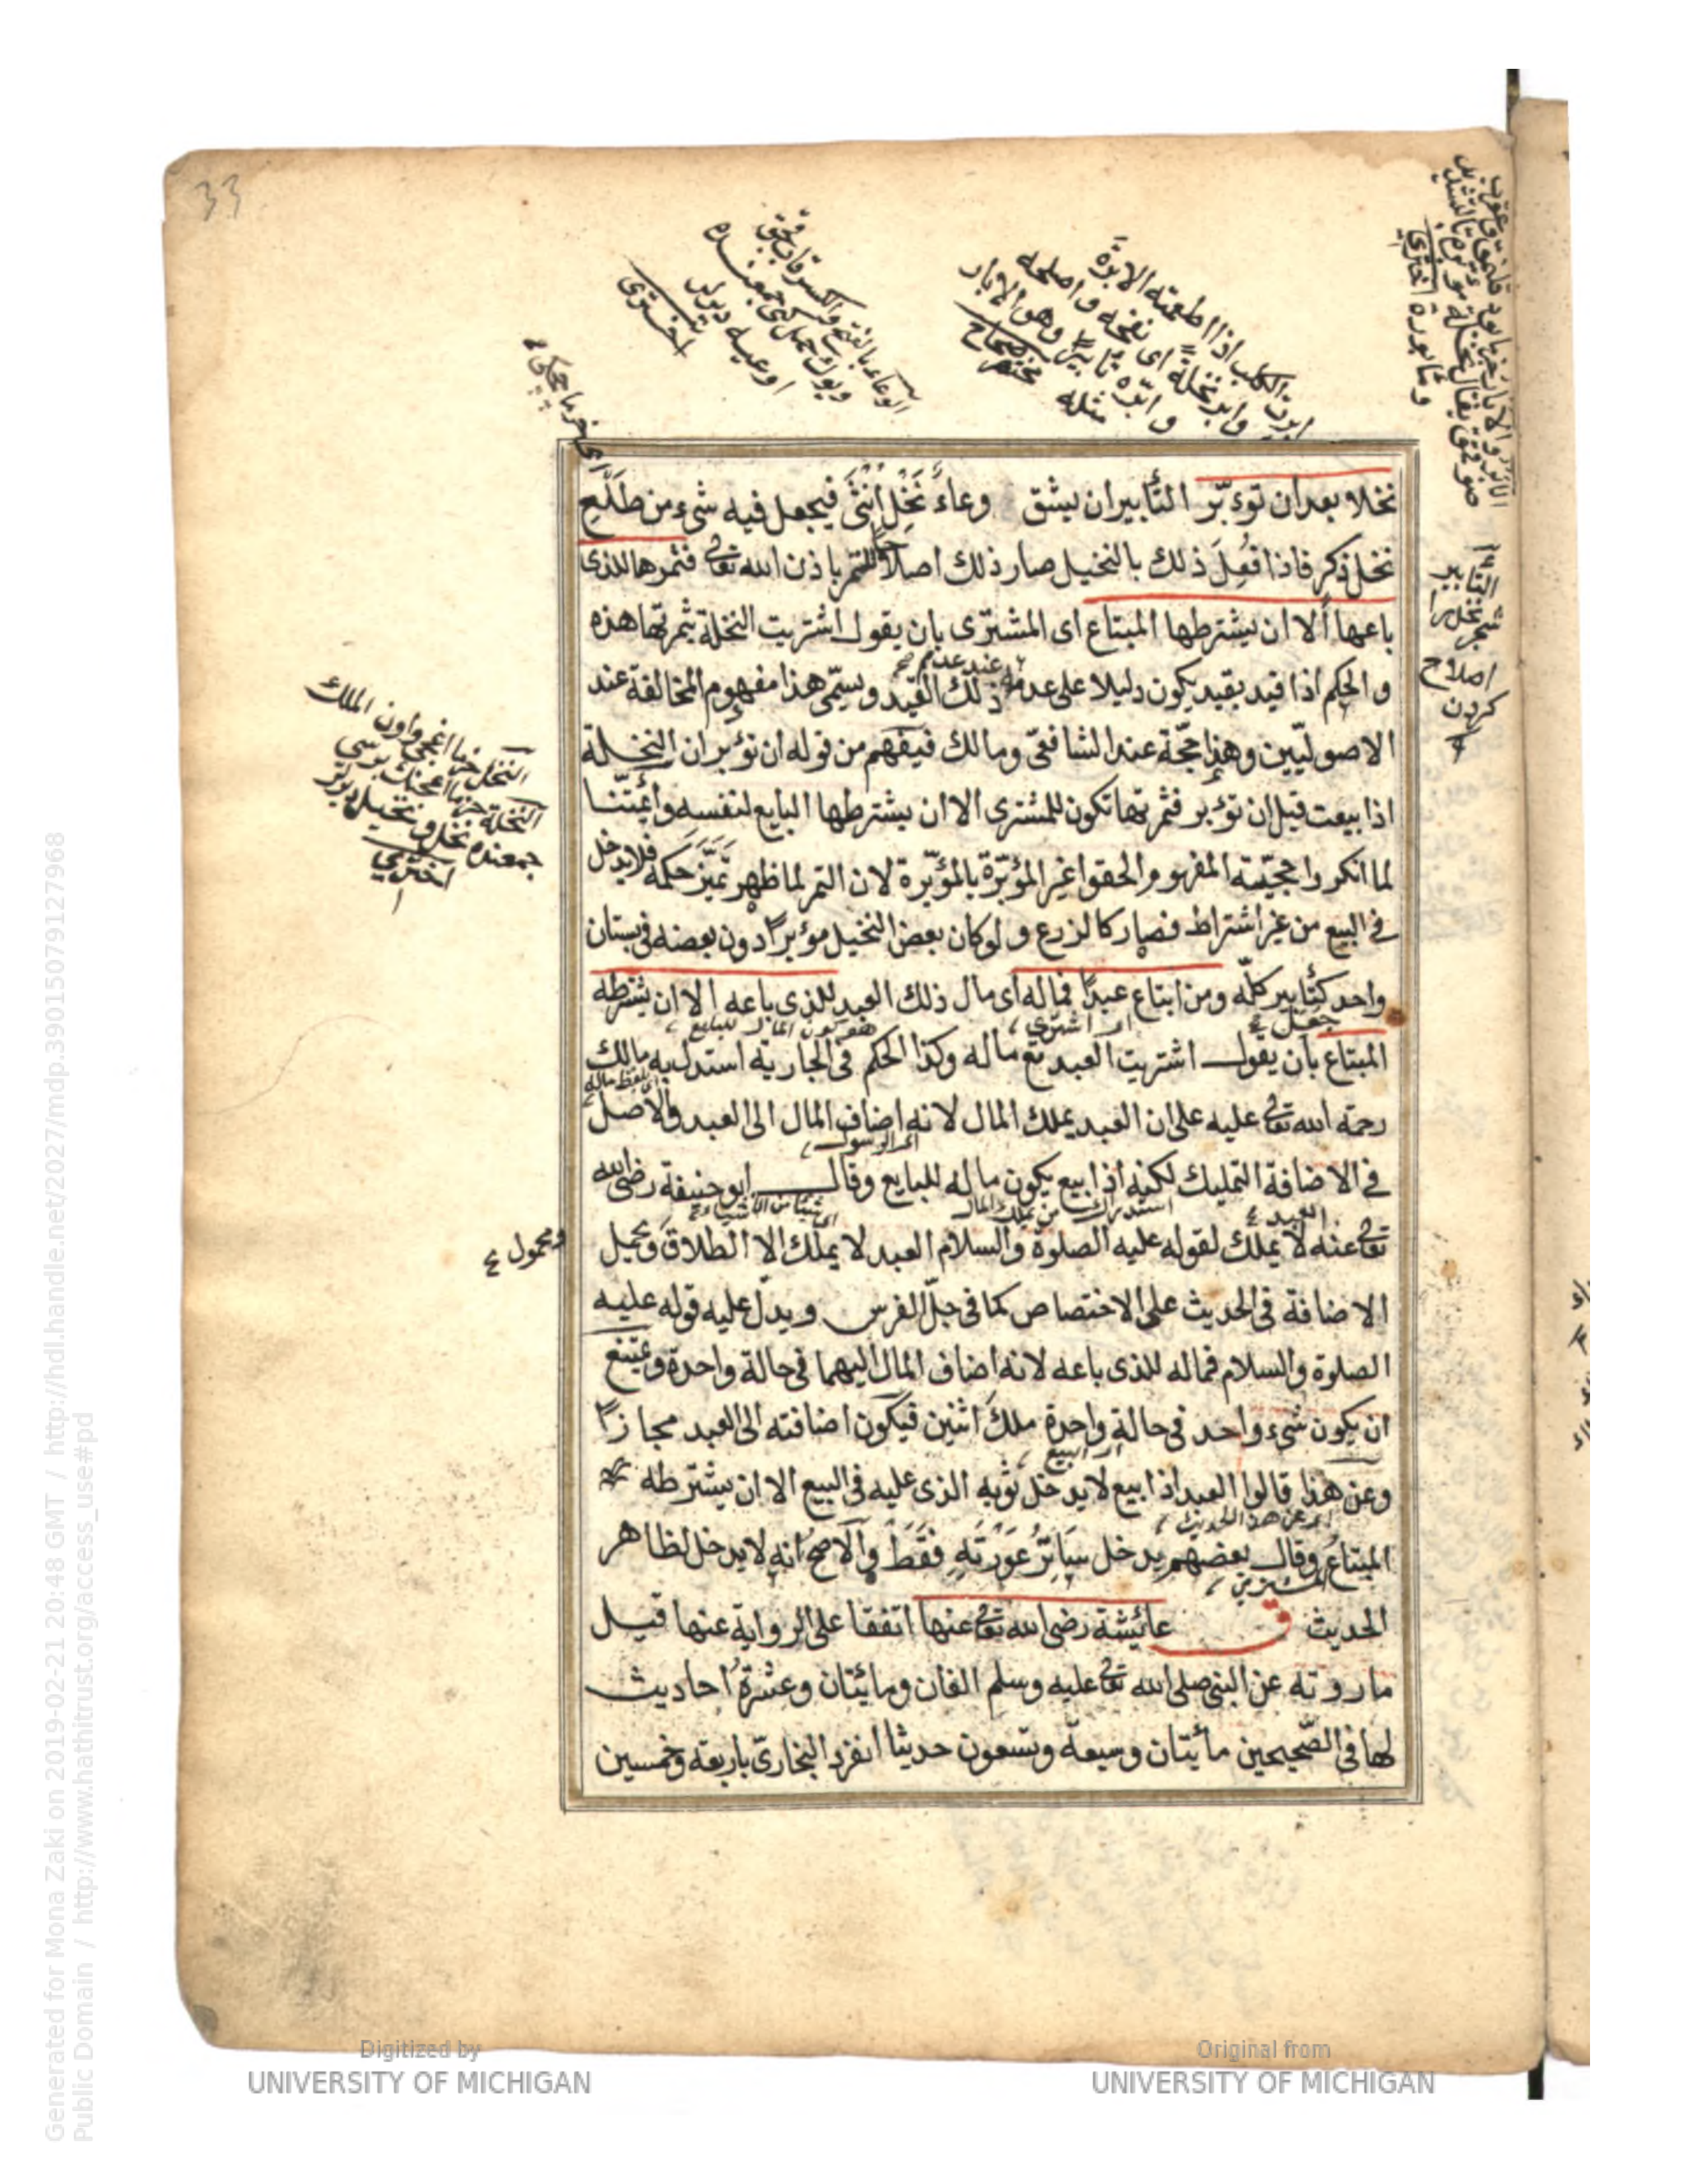 33
ابرت الكلب اذا اطعمته الابرة
وابر نخلةً اى نفخه واصلحه
وابّره تأبيرًا وهو الابار
مثله مختصر صحاح
الوعاء بالفتح والكسر
اوعيه ديرلر
اخترى
التأبير
اصلاح
كردن
النخل خرما اغجى واون الملك
جمعنده نخل ونخيل ديرلر
اخترى
ومحمول
نخلا بعد ان توءبّر التأبير ان يشق وعاءُ نَخْلِ اُنْثَى فيجعل فيه شىء من طَلْعِ
نخل ذكر فاذا فُعِلَ ذلك بالنخيل صار ذلك اصلاحًا للثمر باذن الله تعالى فثمرها للذى
باعها ألا ان يشترطها المبتاع اى المشترى بان يقول اشتريت النخلة بثمرتها هذه
عند عدم
والحكم اذا قيد بقيد يكون دليلا على عدمه ذلك القيد ويسمّى هذا مفهوم المخالفة عند
الاصوليّين وهذا حجّة عند الشافعىّ ومالك فيفهم من قوله ان توءبر ان النخلة
اذا بيعت قبل ان توءبر فثمرتها تكون للمشترى الا ان يشترطها البايع لنفسه وائمّتنا
لما انكروا حجيّته المفهوم والحقوا غير المؤبّرة بالمؤبّرة لان الثمر لما ظهر تميّز حكمه فلا يدخل
فى البيع من غير اشتراط فصار كالزرع ولو كان بعض النخيل مؤبرًا دون بعضه فى بستان
واحد كتأبير كلّه ومن ابتاع عبدًا فماله اى مال ذلك العبد للذى باعه الا ان يشترطه
جعل اى اشترى فيكون المال للبايع
المبتاع بان يقول اشتريت العبد مع ماله وكذا الحكم فى الجارية استدل به مالك
رحمة الله تعالى عليه على ان العبد يملك المال لانه اضاف المال الى العبد والاصل
اى الرسول
فى الاضافة التمليك لكنه اذا بيع يكون ماله للبايع وقال ابو حنيفة رضى الله
العبد استدراك من يملك المال اى شيئا من الاشياء
تعالى عنه لا يملك لقوله عليه الصلوة والسلام العبد لا يملك الا الطلاق ويحمل
الاضافة فى الحديث على الاختصاص كما فى جلّ الفرس ويدلّ عليه قوله عليه
الصلوة والسلام فماله للذى باعه لانه اضاف المال اليهما فى حالة واحدة ويمتنع
ان يكون شىء واحد فى حالة واحدة ملكَ اثنين فيكون اضافته الى العبد مجازًا
اى البيع
وعن هذا قالوا العبد اذا بيع لا يدخل ثوبه الذى عليه فى البيع الا ان يشترطه
اى عن هذا الحديث
المبتاعُ وقال بعضهم يدخل سَاتِرُ عَوْرَتَهِ فَقَطْ والاصح انه لا يدخل لظاهر
الحديث ق عائيشة رضى الله تعالى عنها اتفقا على الرواية عنها قيل
ما روته عن النبى صلى الله تعالى عليه وسلم الفان ومائيتان وعشرةُ احاديث
لها فى الصّحيحين مائيتان وسبعة وتسعون حديثا انفرد البخارى باربعة وخمسين
Digitized by
UNIVERSITY OF MICHIGAN
Original from
UNIVERSITY OF MICHIGAN
Generated for Mona Zaki on 2019-02-21 20:48 GMT / http://hdl.handle.net/2027/mdp.39015079127968
Public Domain / http://www.hathitrust.org/access_use#pd